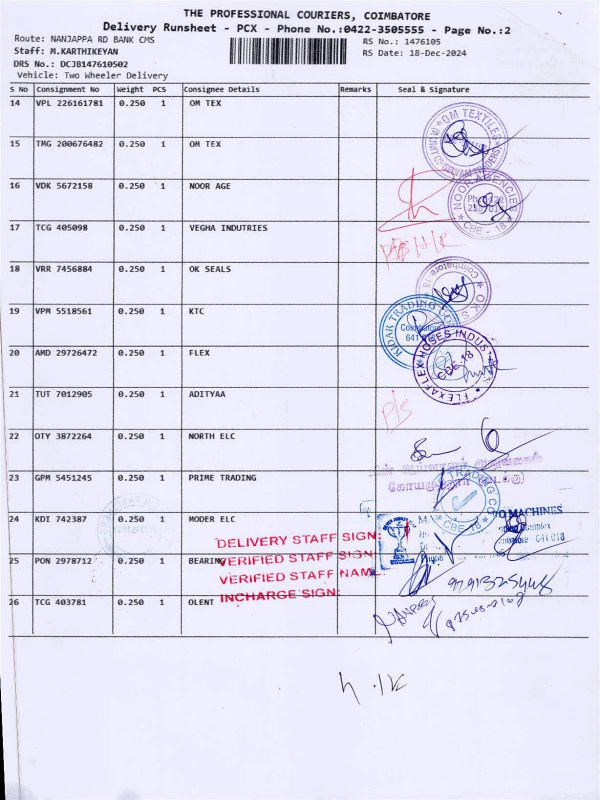 THE PROFESSIONAL COURIERS, COIMBATORE
Delivery Runsheet - PCX - Phone No.:0422-3505555 - Page No.:2
Route: NANJAPPA RD BANK CMS
RS No.: 1476105
Staff: M.KARTHIKEYAN
RS Date: 18-Dec-2024
DRS No.: DCJB147610502
Vehicle: Two Wheeler Delivery
S No Consignment No Weight PCS Consignee Details Remarks Seal & Signature
14 VPL 226161781 0.250 1 OM TEX
OM TEXTILES
15 TMG 200676482 0.250 1 OM TEX
16 VDK 5672158 0.250 1 NOOR AGE
NOOR AGENCIES
CBE - 18
17 TCG 405098 0.250 1 VEGHA INDUTRIES
18 VRR 7456884 0.250 1 OK SEALS
Coimbatore 18
OK S
19 VPM 5518561 0.250 1 KTC
KIDAR TRADING CO
Coimbatore
641
20 AMD 29726472 0.250 1 FLEX
FLEXAFLEX HOSES INDUS
CBE-18
21 TUT 7012905 0.250 1 ADITYAA
P/S
22 OTY 3872264 0.250 1 NORTH ELC
23 GPM 5451245 0.250 1 PRIME TRADING
TRADING CO
CBE - 18
24 KDI 742387 0.250 1 MODER ELC
MACHINES
641 018
25 PON 2978712 0.250 1 BEARING
DELIVERY STAFF SIGN:
VERIFIED STAFF SIGN
VERIFIED STAFF NAME
INCHARGE SIGN:
26 TCG 403781 0.250 1 OLENT